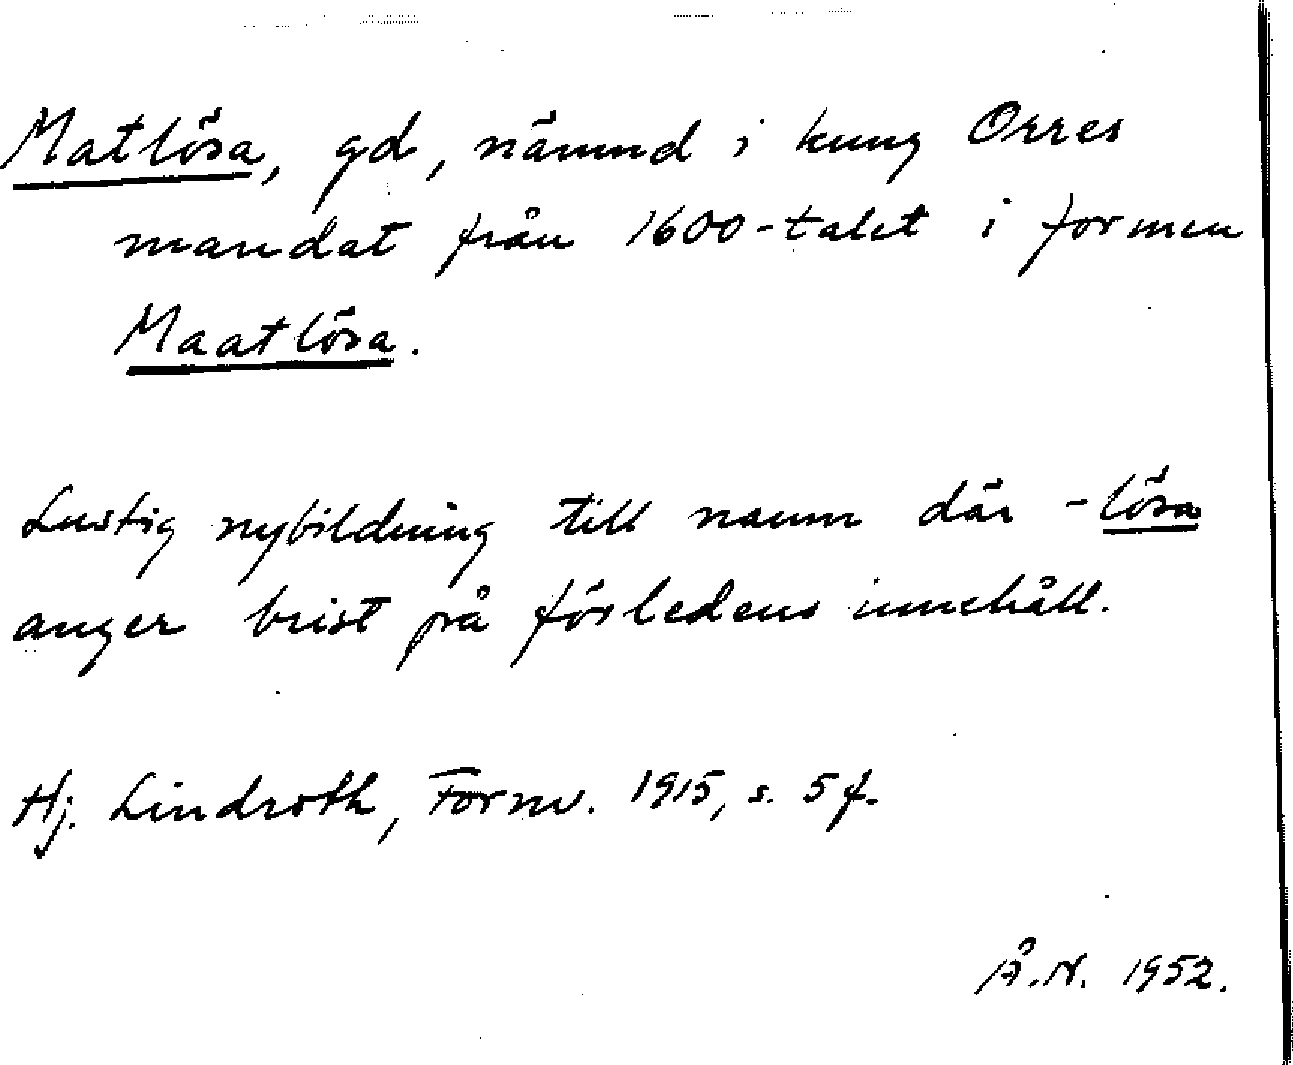 Matlösa, gd, nämnd i kung Orres
mandat från 1600-talet i formen
Maatlösa.
Lustig nybildning till namn där -lösa
anger brist på förledens innehåll.
Hj. Lindroth, Fornv. 1915, s. 5 f.
Å.N. 1952.